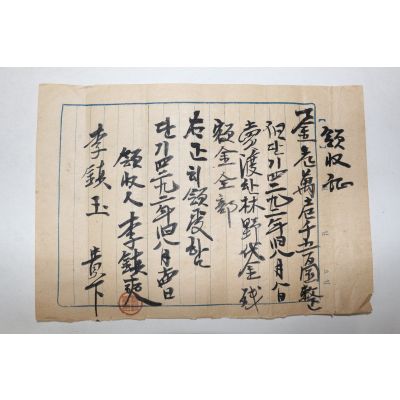 領收証
一金壱萬壱千五百圜整
但단기四二九一年 八月 日
賣渡한林野代金残
額金全部
右正히領受함
단기四二九 年 八月 日
領收人 李鎭
李鎭玉 貴下